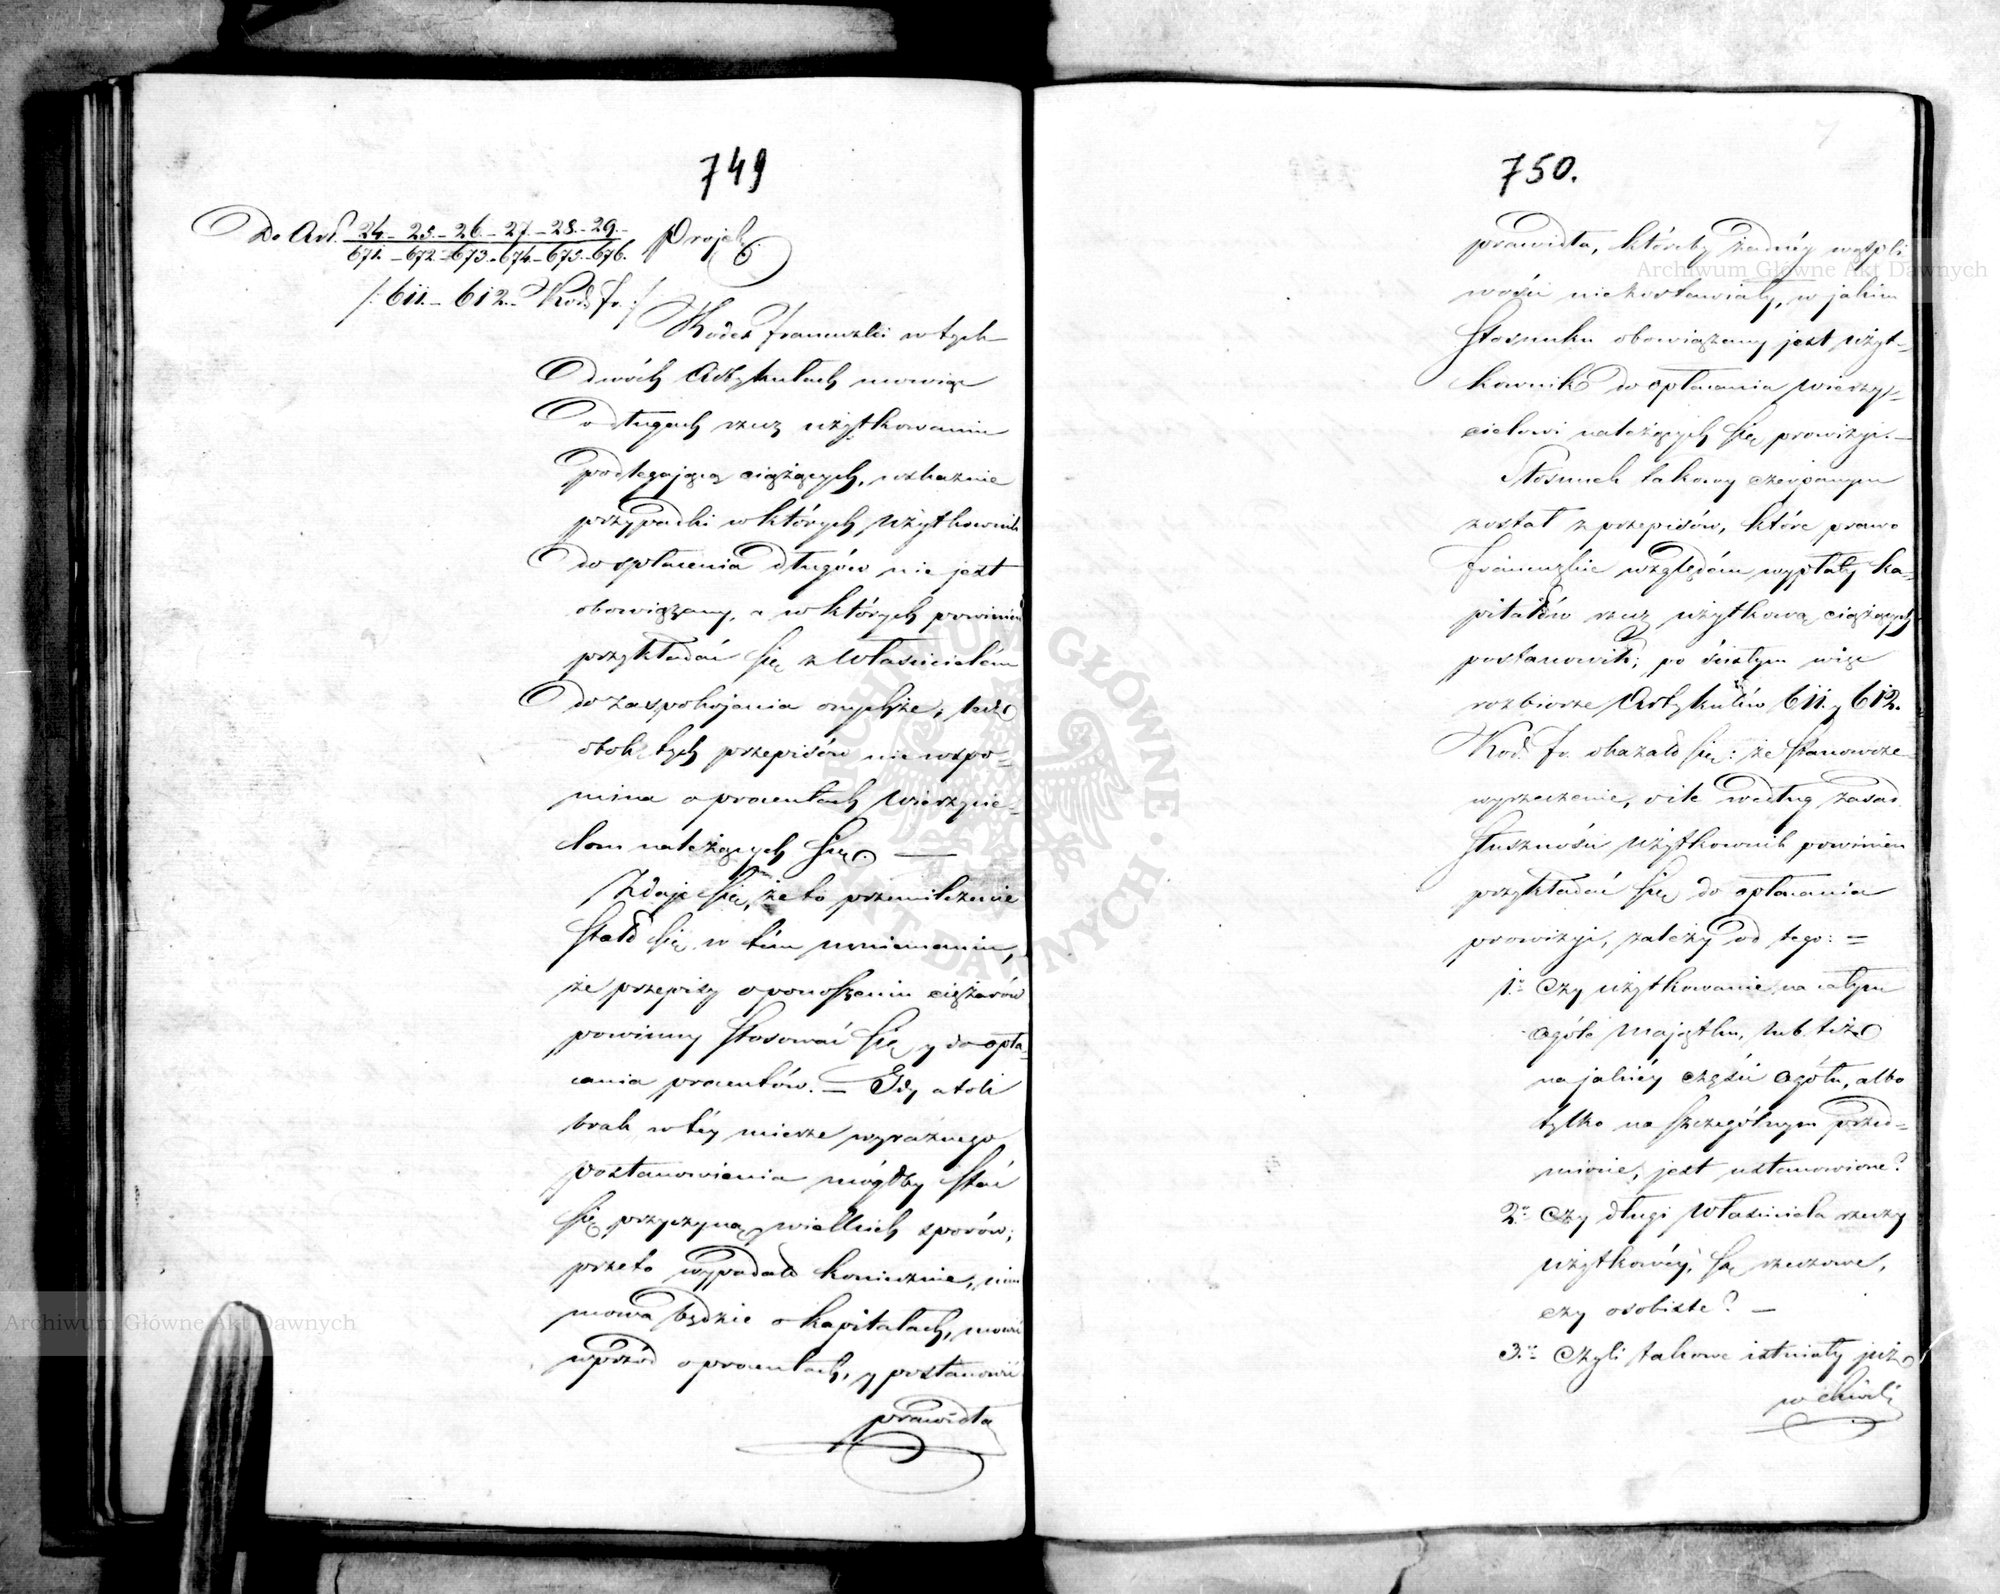 749
Do Art. 24.- 25.- 26.- 27.- 28.- 29.- Projek:
671.-672.-673.-674.-675.-676.
/:611.- 612. Kod. fr.:/
Kodex francuzki w tych
dwóch Artykułach mowiąc
o długach rzecz użytkowaniu
podlegaiącą ciążących, wskaznie
przypadki w których użytkownik
do spłacenia długów nie jest
obowiązany, a w których powinien
przykładać się z Właścicielem
do zaspokojenia onychże; lecz
obok tych przepisów nie wspo-
mina o procentach Wierzycie-
lom należących się. —
Zdaje się, że to przemilczenie
stało się w tém mniemaniu,
że przepisy o ponoszeniu ciężarów
powinny stosować się y do opła-
cania procentów. — Gdy atoli
brak w téy mierze wyraźnego
postanowienia mógłby stać
się przyczyną wielkich sporów;
przeto wypadało koniecznie, nim
mowa będzie o kapitałach, mowić
wprzód o procentach, y postanowić
prawidła
750.
prawidła, któreby żadnéy wątpli
wości niezostawiały, w jakim
stosunku obowiązany jest użyt-
kownik do opłacania Wierzy-
cielowi należących się prowizyi.—
Stosunek takowy czerpanym
został z przepisów, które prawo
francuzkie względem wypłaty ka-
pitałów rzecz użytkową ciążących
postanowiło; po ścisłym więc
rozbiorze Artykułów 611. y 612.
Kod. fr. okazało się: że stanowcze
wyrzeczenie, o ile według zasad
słuszności Użytkownik powinien
przykładać się do opłacania
prowizyi, zależy od tego: =
1.o Czy użytkowanie na całym
ogóle Majątku, lub też
na jakiéy części ogółu, albo
tylko na szczególnym przed-
miocie, jest ustanowione?
2.o Czy długi Właściciela rzeczy
użytkowéy, są rzeczowe,
czy osobiste? —
3.o Czyli takowe istniały już
w chwili
Archiwum Główne Akt Dawnych
Archiwum Główne Akt Dawnych
ARCHIWUM GŁÓWNE AKT DAWNYCH